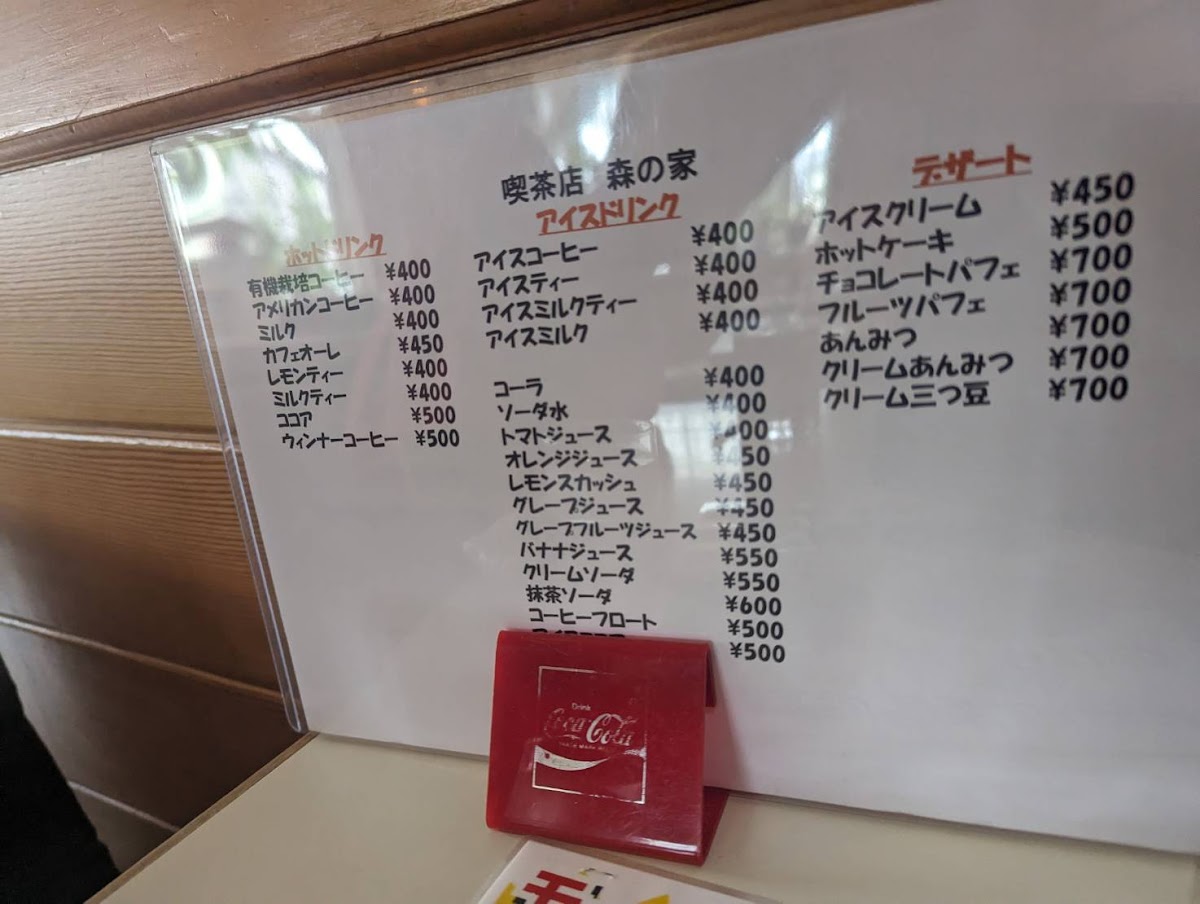 喫茶店 森の家
ホットドリンク
有機栽培コーヒー ¥400
アメリカンコーヒー ¥400
ミルク ¥400
カフェオーレ ¥450
レモンティー ¥400
ミルクティー ¥400
ココア ¥500
ウィンナーコーヒー ¥500
アイスドリンク
アイスコーヒー ¥400
アイスティー ¥400
アイスミルクティー ¥400
アイスミルク ¥400
コーラ ¥400
ソーダ水 ¥400
トマトジュース ¥400
オレンジジュース ¥450
レモンスカッシュ ¥450
グレープジュース ¥450
グレープフルーツジュース ¥450
バナナジュース ¥550
クリームソーダ ¥550
抹茶ソーダ ¥600
コーヒーフロート ¥500
¥500
デザート
アイスクリーム ¥450
ホットケーキ ¥500
チョコレートパフェ ¥700
フルーツパフェ ¥700
あんみつ ¥700
クリームあんみつ ¥700
クリーム三つ豆 ¥700
Drink
Coca-Cola
TRADE MARK